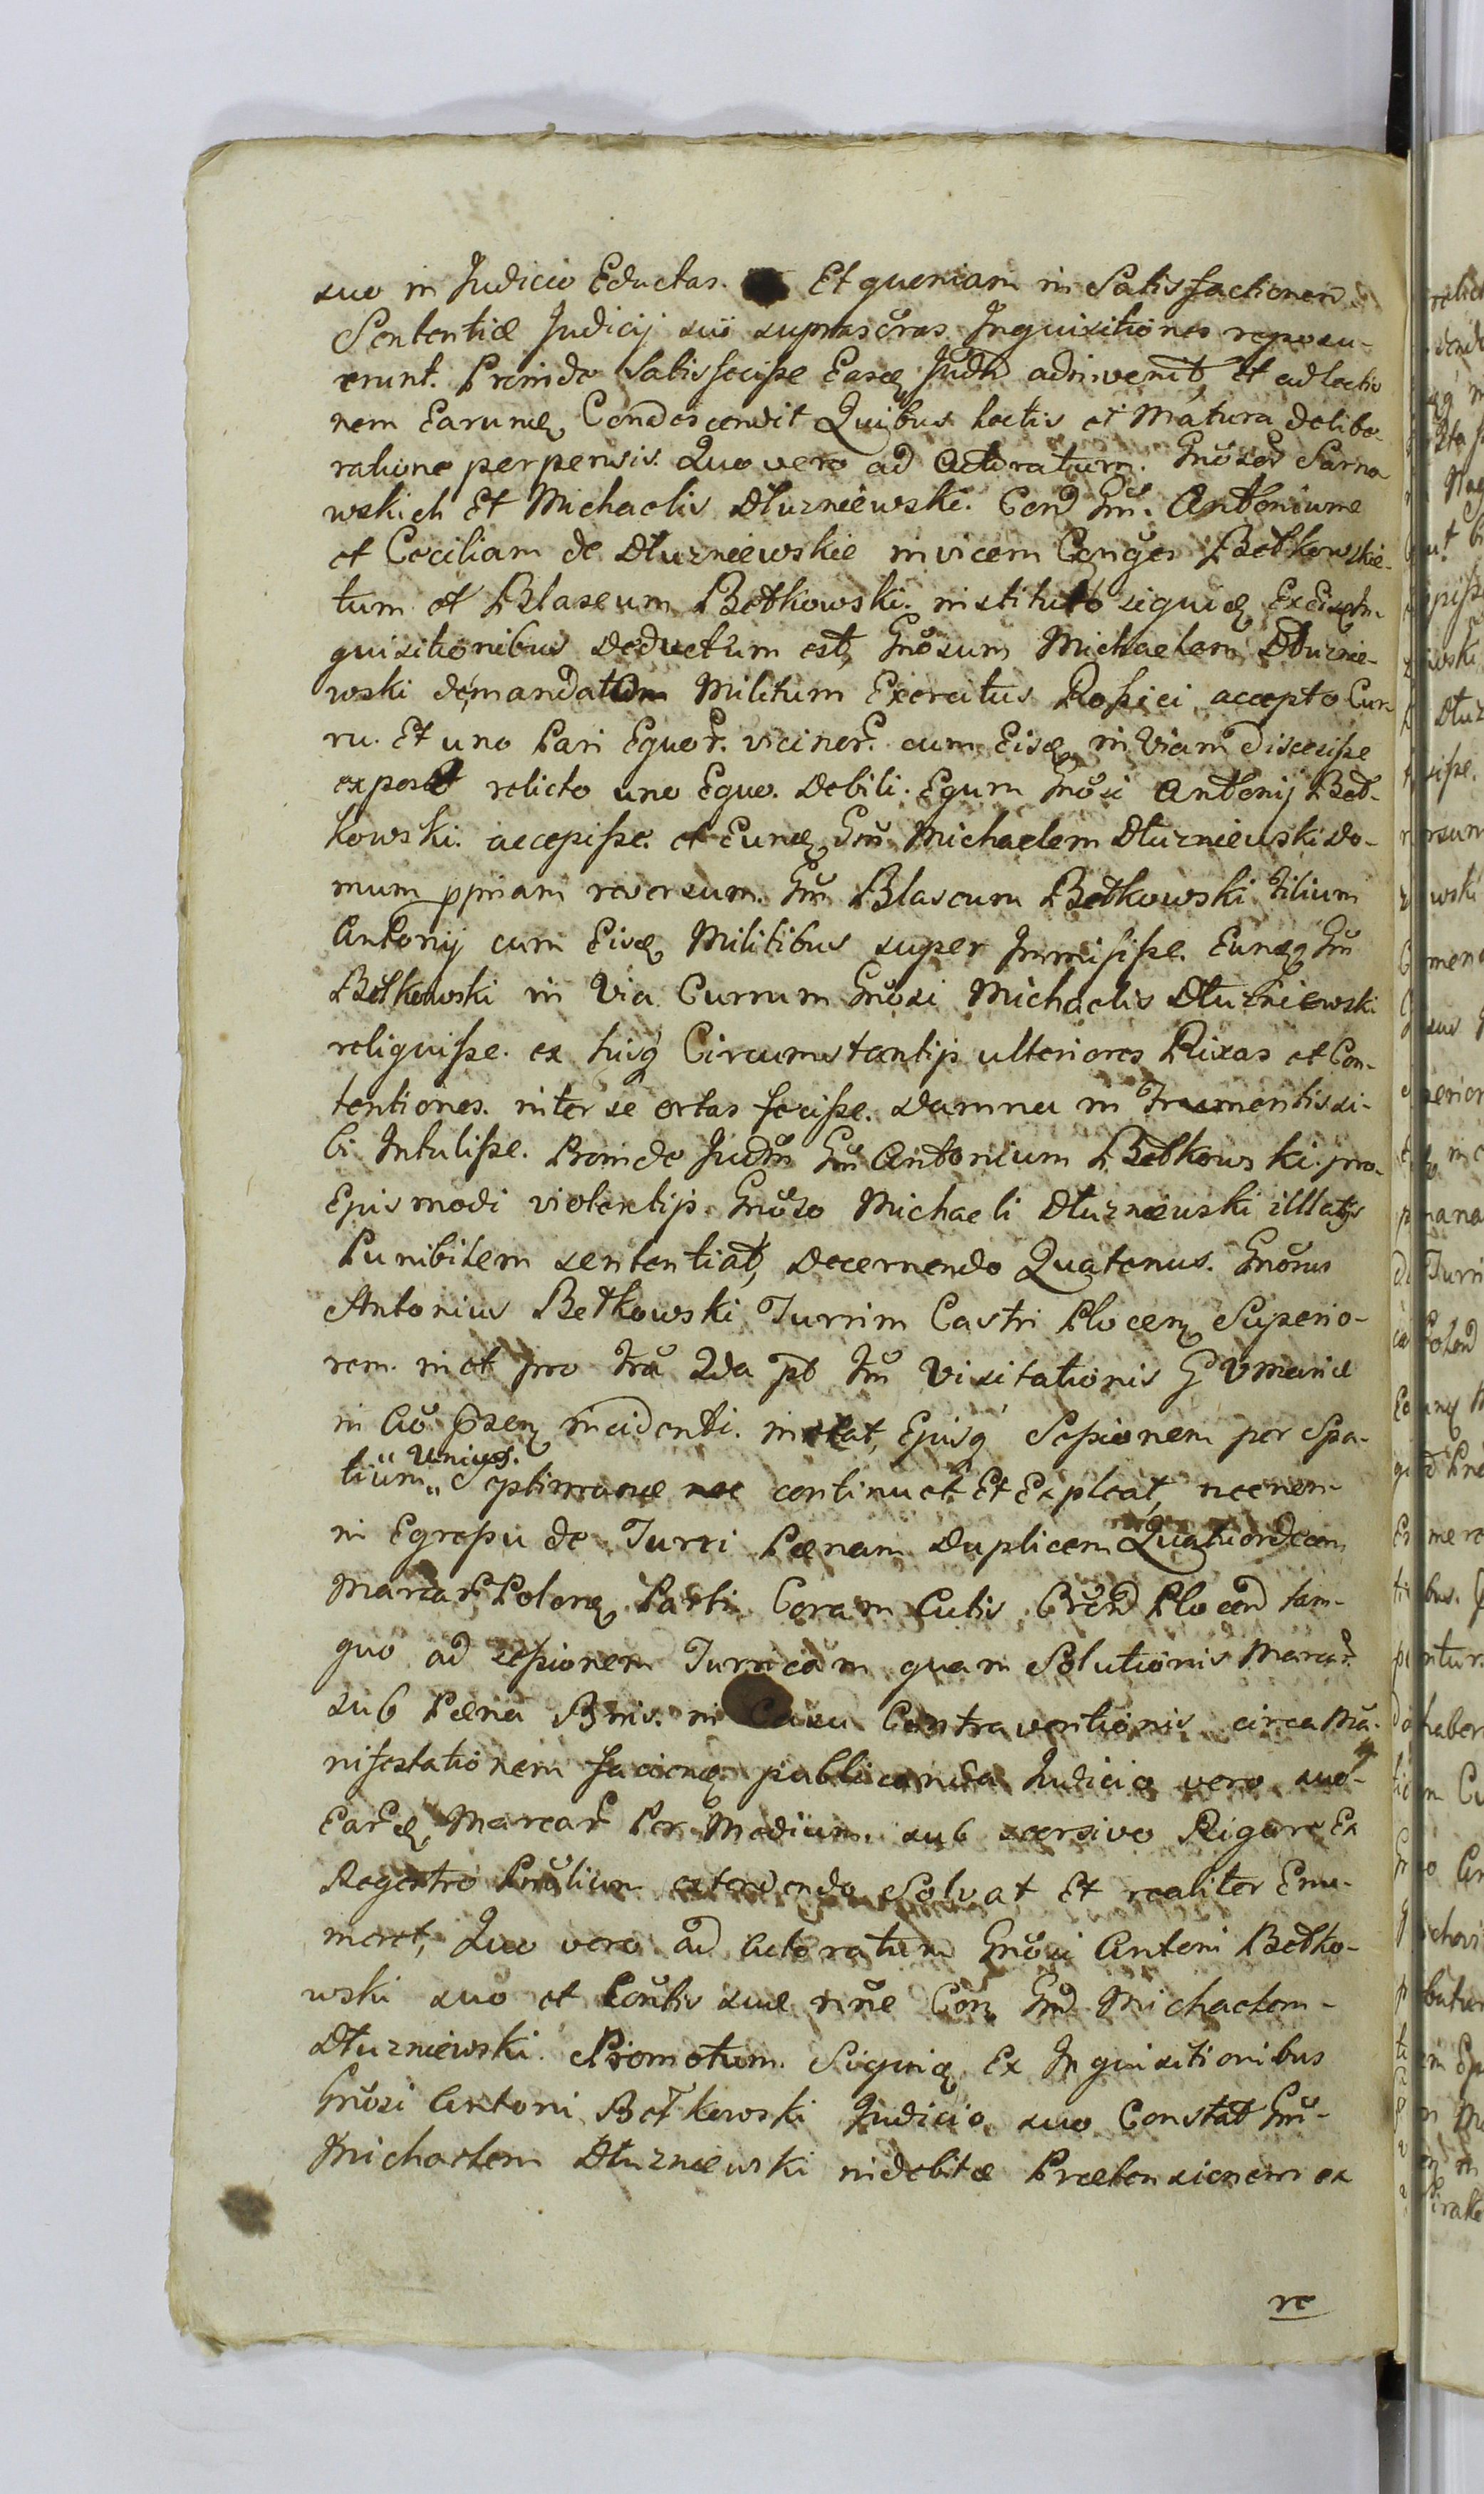 suo in Judicio Eductas. Et quoniam in Satisfactionem
Sententiæ Judicij sui suprascras Inquisitiones reposu-
erunt. Proinde Satisfecisse Easq Judm adinvenit, et ad lectio
nem Earumq Condescendit Quibus lectis et Matura delibe-
ratione perpensis. Quo vero ad Actoratum. Gnosor Sarno
wskich Et Michaelis Dłuzniewski. Con Gm. Antonium
et Ceciliam de Dłuzniewskie invicem Conges Bet̃kowskie-
tum et Blaseum Betkowski. institutũ siquiq Ex Eisdem In-
quisitionibus deductum est, Gnosum Michaelem Dłuznie-
wski demandatum Militum Exercitus Rossici accepto Cur-
ru. Et uno Pari Equor. vicinor. cum Eisq in Viam discessisse
expost relicto uno Equo. Debili. Equm Gnosi Antonij Bet-
kowski. accepisse. et Eunq Gm Michaelem Dłuzniewski do-
mum ppriam reversum. Gm Blaseum Betkowski filium
Antonij cum Eisq Militibus super Immisisse. Eunqq Gm
Betkowski in Via Currum Gnosi Michaelis Dłuzniewski
reliquisse. ex hisq Circumstantijs ulteriores Rixas et Con-
tentiones. inter se ortas fecisse. damna in Frumentis si-
bi Intulisse. Proinde Judm Gm Antonium Betkowski pro
Ejusmodi violentijs. Gnoso Michaeli Dłuzniewski illatis
Punibilem sententiat, decernendo Quatenus. Gnosus
Antonius Betkowski Turrim Castri Plocenq Superio-
rem. in et pro fra 2da pt fm Visitationis G V Mariæ
in Ao pxsenq incidenti. instat, Ejusq Sessionem per Spa-
tium „Unius.„ Septimanæ continuet Et Expleat, necnon
in Egressu de Turri Pænam duplicem Quatuordecem
Marcar Polonq Parti Coram Actis Cren Plocen tam
quo ad sessionem Turricam quam Solutionis Marcar.
sub Pæna Bnis. in Casu Contraventionis circa Ma-
nifestationem faciendq publicanda Judicio vero suo
Earq Marcar Per Medium. sub scersivo Rigore Ex
Regestro Pnalium extendendo Solvat Et realiter Enu-
meret, Quo vero ad Actoratum Gnosi Antoni Betko-
wski suo et Contis suæ nne Con Gm Michaelem
Dłuzniewski. Promotum. Siquiq Ex Inquisitionibus
Gnosi Antoni Betkowski Judicio suo Constat Gm
Michaelem Dłuzniewski indebitæ Prætensionem ex
re